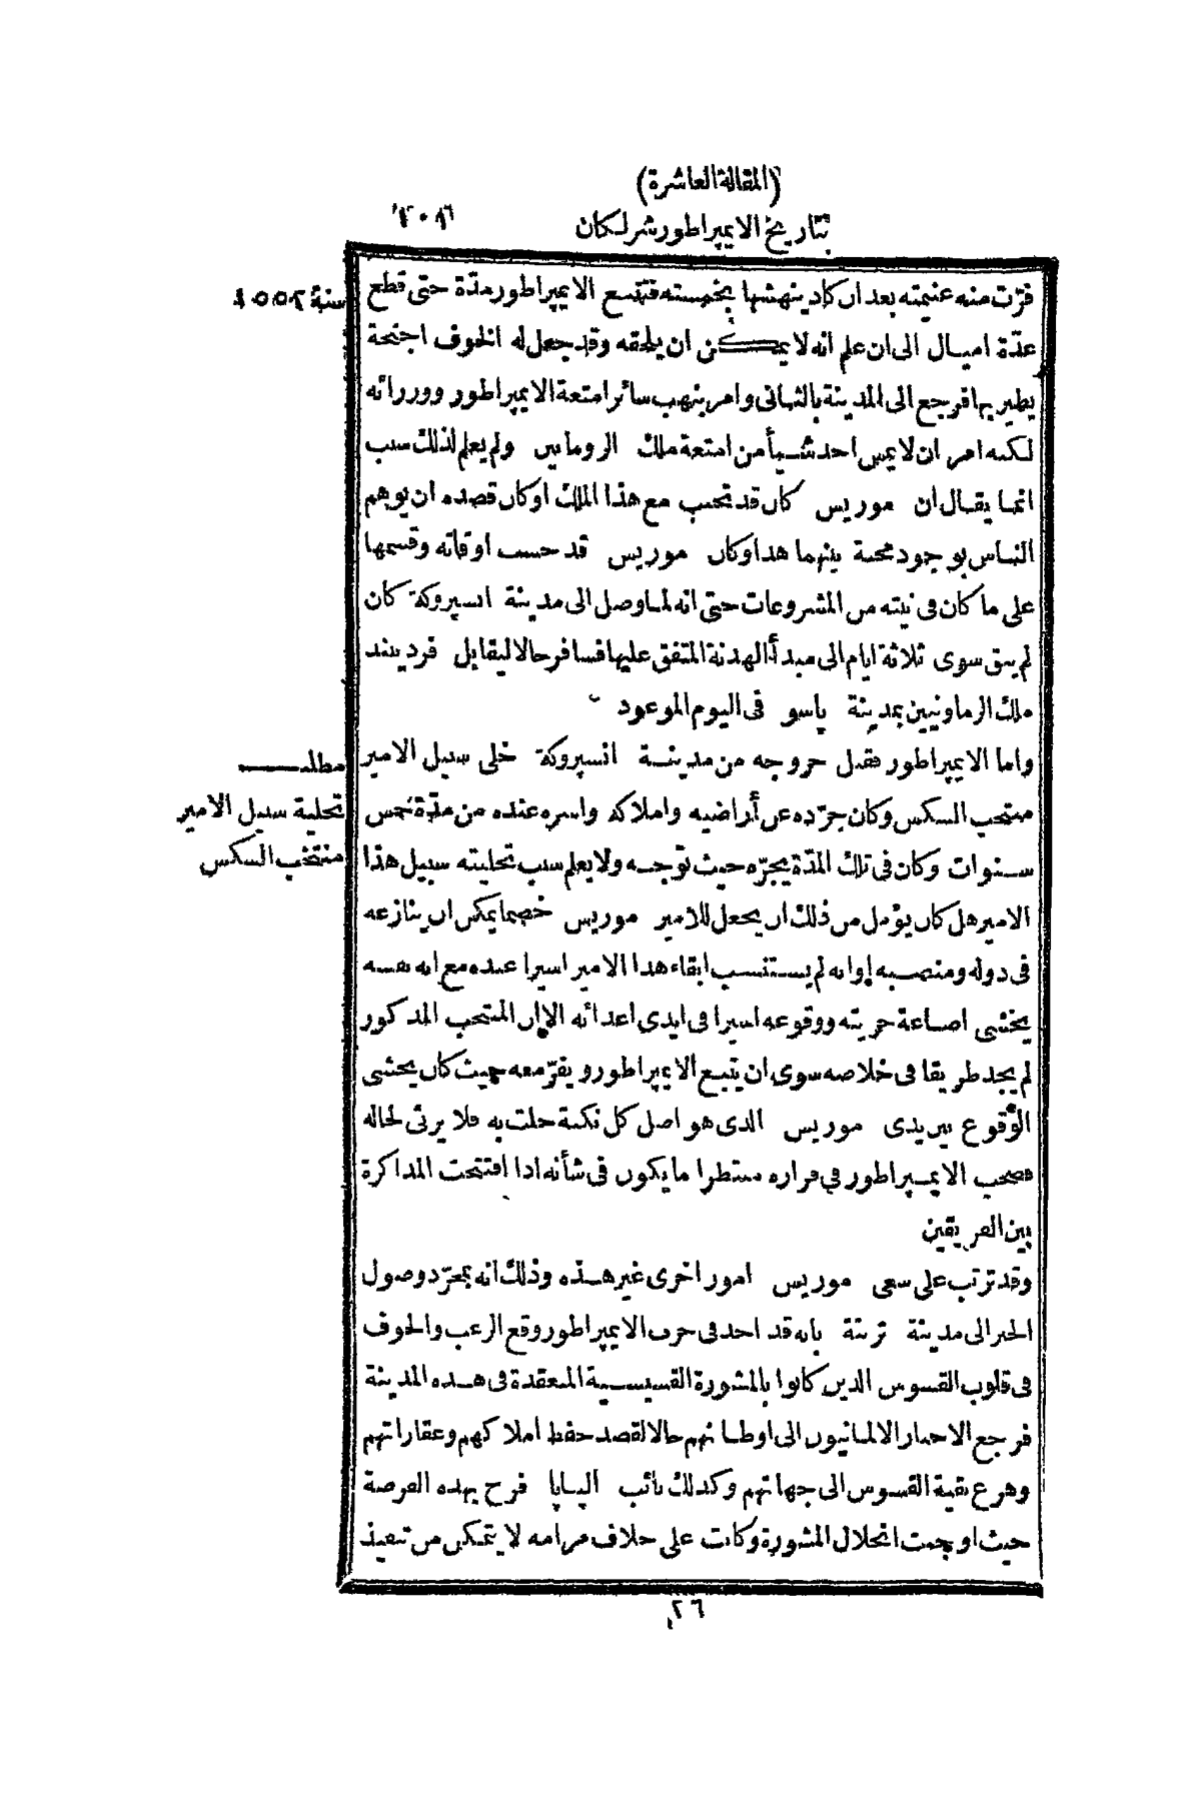 (المقالة العاشرة)
بتاريخ الايمبراطور شرلكان
سنة ١٥٥٢
فرّت منه غنيمته بعد ان كاد ينهشها بخمسته فتتبع الايمبراطور مدّة حتى قطع
عدّة اميال الى ان علم انه لا يمكن ان يلحقه وقد جعل له الخوف اجنحة
يطير بها فرجع الى المدينة بالثانى وامر بنهب سائر امتعة الايمبراطور ووزرائه
لكنه امر ان لا يمس احد شيأ من امتعة ملك الرومانيين ولم يعلم لذلك سبب
انما يقال ان موريس كان قد تحبب مع هذا الملك او كان قصده ان يوهم
الناس بوجود محبة بينهما هذا وكان موريس قد حسب اوقاته وقسمها
على ما كان فى نيته من المشروعات حتى انه لما وصل الى مدينة انسبروكة كان
لم يبق سوى ثلاثة ايام الى مبدأ الهدنة المتفق عليها فسافر حالا ليقابل فرديند
ملك الرماونيين بمدينة پاسو فى اليوم الموعود
واما الايمبراطور فقبل خروجه من مدينة انسبروكة خلى سبيل الامير
مطلب
تخلية سبيل الامير
منتخب السكس
منتخب السكس وكان جرّده عن أراضيه واملاكه واسره عنده من مدّة خمس
سنوات وكان فى تلك المدّة يجرّه حيث توجه ولا يعلم سبب تخليته سبيل هذا
الامير هل كان يؤمل من ذلك ان يجعل للامير موريس خصما يمكن ان ينازعه
فى دوله ومنصبه او انه لم يستنسب ابقاء هذا الامير اسيرا عنده مع انه نفسه
يخشى اضاعة حريته ووقوعه اسيرا فى ايدى اعدائه الا ان المنتخب المذكور
لم يجد طريقا فى خلاصه سوى ان يتبع الايمبراطور ويفرّ معه حيث كان يخشى
الوقوع بين يدى موريس الذى هو اصل كل نكبة حلت به فلا يرثى لحاله
فصحب الايمبراطور فى فراره منتظرا ما يكون فى شأنه اذا افتتحت المذاكرة
بين الفريقين
وقد ترتب على سعى موريس امور اخرى غير هذه وذلك انه بمجرّد وصول
الخبر الى مدينة ترنتة بانه قد اخذ فى حرب الايمبراطور وقع الرعب والخوف
فى قلوب القسوس الذين كانوا بالمشورة القسيسية المنعقدة فى هذه المدينة
فرجع الاحبار الالمانيون الى اوطانهم حالا لقصد حفظ املاكهم وعقاراتهم
وهرع بقية القسوس الى جهاتهم وكذلك نائب الپاپا فرح بهذه الفرصة
حيث اوجبت انحلال المشورة وكانت على خلاف مرامه لا يتمكن من تنفيذ
٢٦